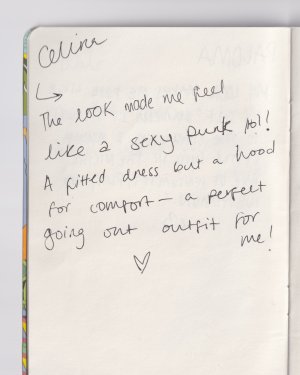 Celina
The look made me feel
like a sexy punk lol!
A fitted dress but a hood
for comfort – a perfect
going out outfit for
me!